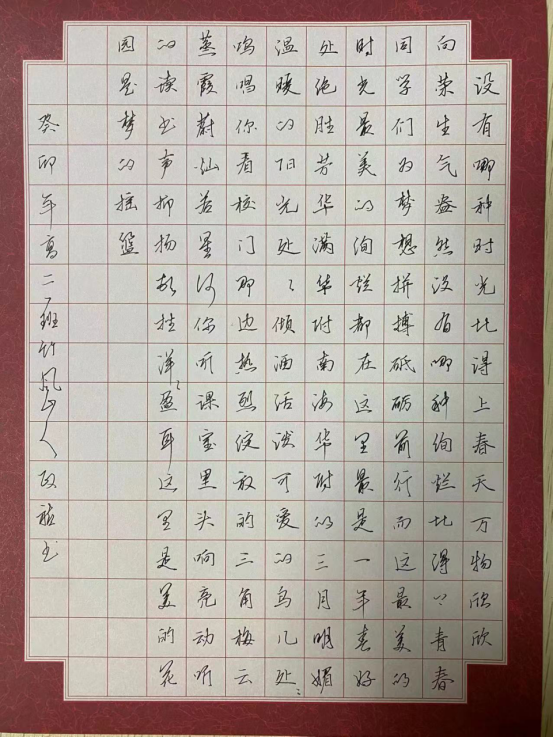 没有哪种时光比得上春天万物欣欣
向荣生气盎然没有哪种绚烂比得上青春
同学们为梦想拼搏砥砺前行而这最美好的
时光最美的绚烂都在这里最是一年春好
处绝胜芳华满华附南海华附的三月明媚
温暖的阳光处处倾洒活泼可爱的鸟儿处处
鸣唱你看校门那边热烈绽放的三角梅云
蒸霞蔚灿若星河你听课室里头响亮动听
的读书声抑扬顿挫洋洋盈耳这里是美的花
园是梦的摇篮
癸卯年高二班竹风山人书